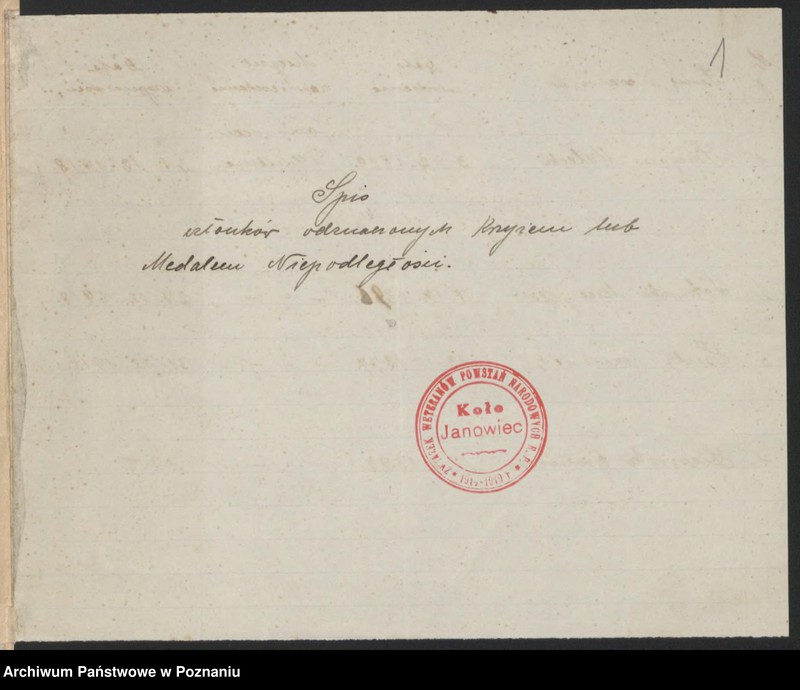 1
Spis
członków odznaczonych Krzyżem lub
Medalem Niepodległości.
ZWIĄZEK WETERANÓW POWSTAŃ NARODOWYCH R.P.
1914-1919 r.
Koło
Janowiec
Archiwum Państwowe w Poznaniu